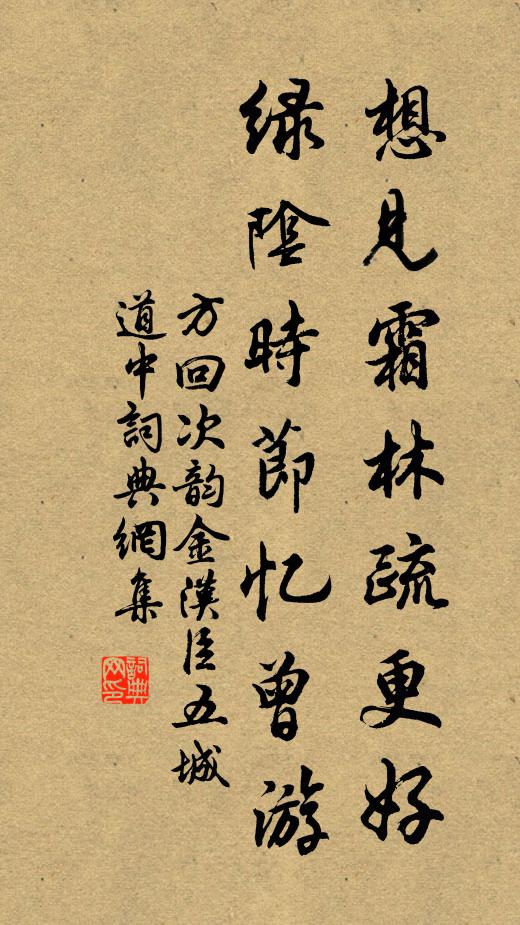 想見霜林疏更好
绿陰時節忆曾游
方回次韵金漢臣五城
道中詞典網集
詞典网印